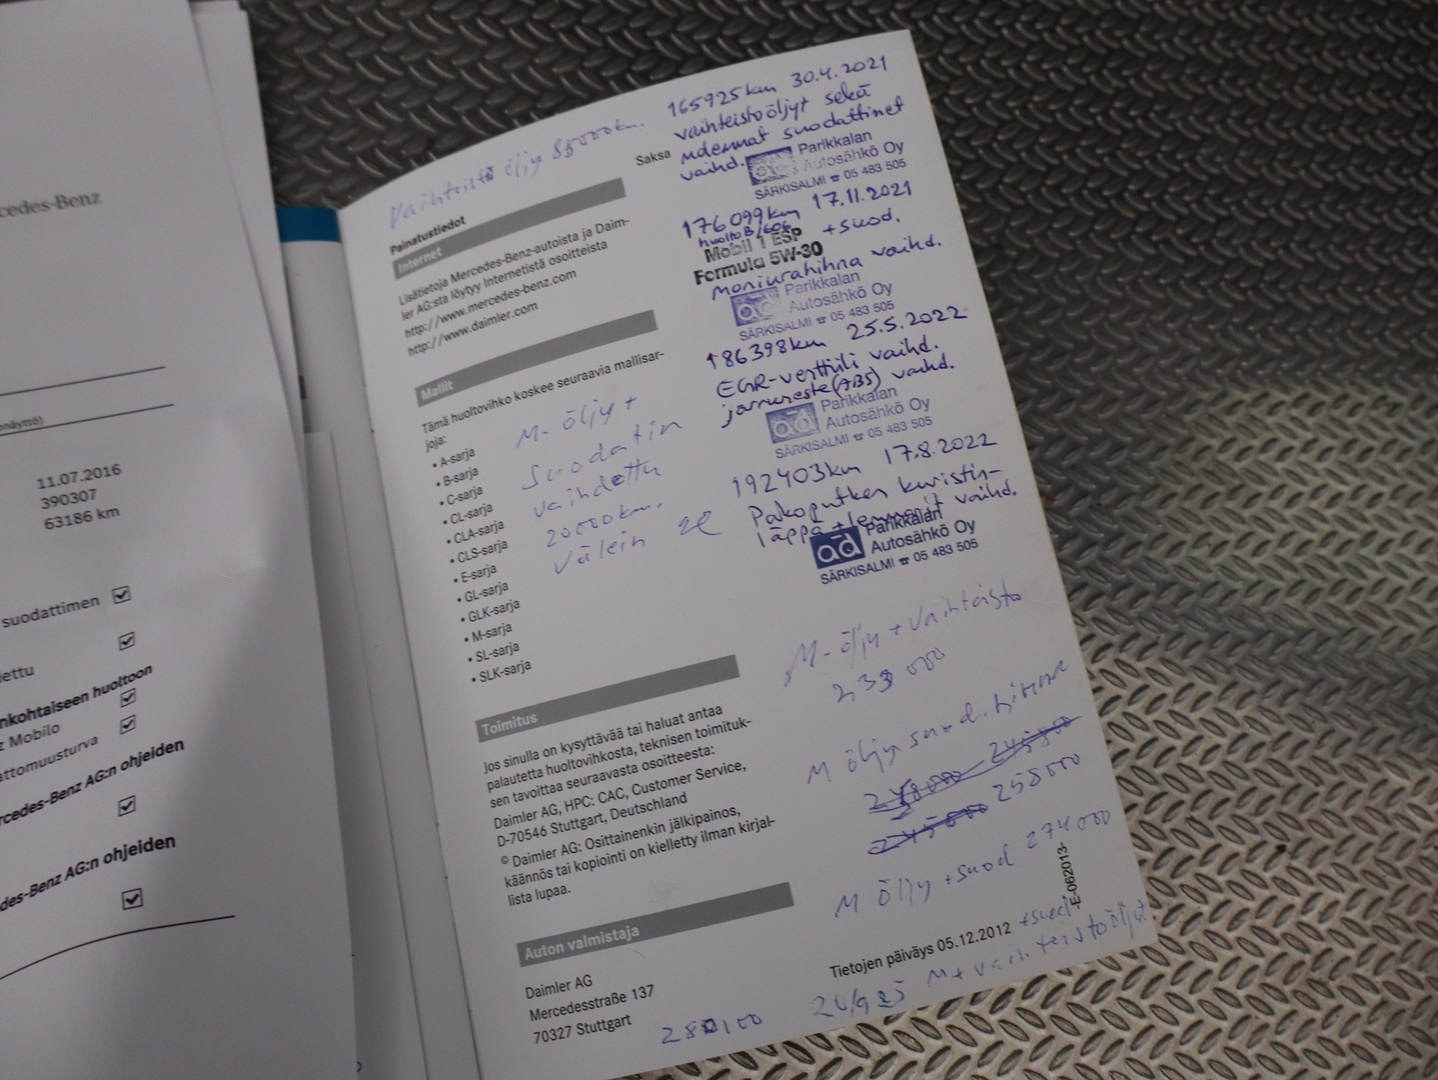 cedes-Benz
onäyttö)
11.07.2016
390307
63186 km
suodattimen
ettu
nkohtaiseen huoltoon
z Mobilo
attomuusturva
rcedes-Benz AG:n ohjeiden
des-Benz AG:n ohjeiden
Vaihteistö öljy 85000 km.
Saksa
Painatustiedot
Internet
Lisätietoja Mercedes-Benz-autoista ja Daim-
ler AG:sta löytyy Internetistä osoitteista
http://www.mercedes-benz.com
http://www.daimler.com
Mallit
Tämä huoltovihko koskee seuraavia mallisar-
joja:
• A-sarja
• B-sarja
• C-sarja
• CL-sarja
• CLA-sarja
• CLS-sarja
• E-sarja
• GL-sarja
• GLK-sarja
• M-sarja
• SL-sarja
• SLK-sarja
M- öljy +
Suodatin
vaihdettu
20000km.
välein
Toimitus
Jos sinulla on kysyttävää tai haluat antaa
palautetta huoltovihkosta, teknisen toimituk-
sen tavoittaa seuraavasta osoitteesta:
Daimler AG, HPC: CAC, Customer Service,
D-70546 Stuttgart, Deutschland
© Daimler AG: Osittainenkin jälkipainos,
käännös tai kopiointi on kielletty ilman kirjal-
lista lupaa.
Auton valmistaja
Daimler AG
Mercedesstraße 137
70327 Stuttgart
165925km 30.4.2021
vaihteistoöljyt sekä
molemmat suodattimet
vaihd.
ad Parikkalan
Autosähkö Oy
SÄRKISALMI ☎ 05 483 505
176099km 17.11.2021
huolto B/606 + suod.
Mobil 1 ESP
Formula 5W-30
moniurahihna vaihd.
ad Parikkalan
Autosähkö Oy
SÄRKISALMI ☎ 05 483 505
186398km 25.5.2022
EGR-venttiili vaihd.
jarruneste(ABS) vaihd.
ad Parikkalan
Autosähkö Oy
SÄRKISALMI ☎ 05 483 505
192403km 17.8.2022
Pakoputken kuristin-
läppä + vaihd.
ad Parikkalan
Autosähkö Oy
SÄRKISALMI ☎ 05 483 505
M- öljy + Vaihteisto
233 000
M öljy suod.
258000
M öljy + suod 274000
E-062013-
Tietojen päiväys 05.12.2012 + suod
M + vaihteistoöljyt